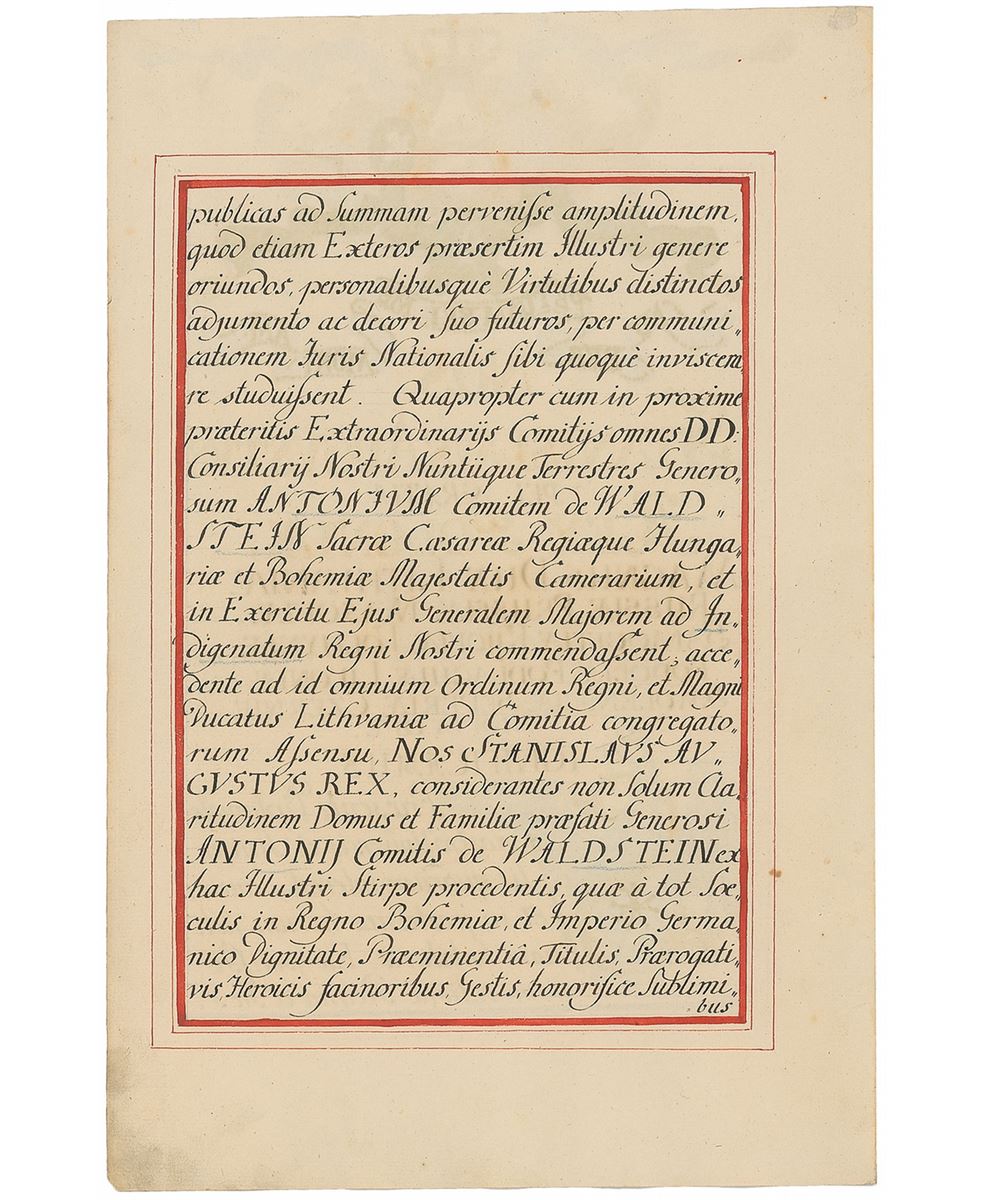 publicas ad Summam perveniſse amplitudinem,
quod etiam Exteros præsertim Illustri genere
oriundos, personalibusquè Virtutibus distinctos
adjumento ac decori ſuo futuros, per communi„
cationem Iuris Nationalis ſibi quoquè inviscera„
re studuiſsent. Quapropter cum in proxime
præteritis Extraordinarijs Comitijs omnes DD:
Consiliarij Nostri Nuntiique Terrestres Genero„
sum ANTONIVM Comitem de WALD„
STEIN Sacræ Cæsareæ Regiæque Hunga„
riæ et Bohemiæ Majestatis Camerarium, et
in Exercitu Ejus Generalem Majorem ad In„
digenatum Regni Nostri commendaſsent, acce„
dente ad id omnium Ordinum Regni, et Magni
Ducatus Lithvaniæ ad Comitia congregato„
rum Aſsensu, NOS STANISLAVS AV„
GVSTVS REX, considerantes non Solum Cla„
ritudinem Domus et Familiæ præfati Generosi
ANTONIJ Comitis de WALDSTEIN ex
hac Illustri Stirpe procedentis, quæ à tot Sœ„
culis in Regno Bohemiæ, et Imperio Germa„
nico Dignitate, Præeminentiâ, Titulis, Prærogati„
vis, Heroicis facinoribus, Gestis, honorifice Sublimi„
bus